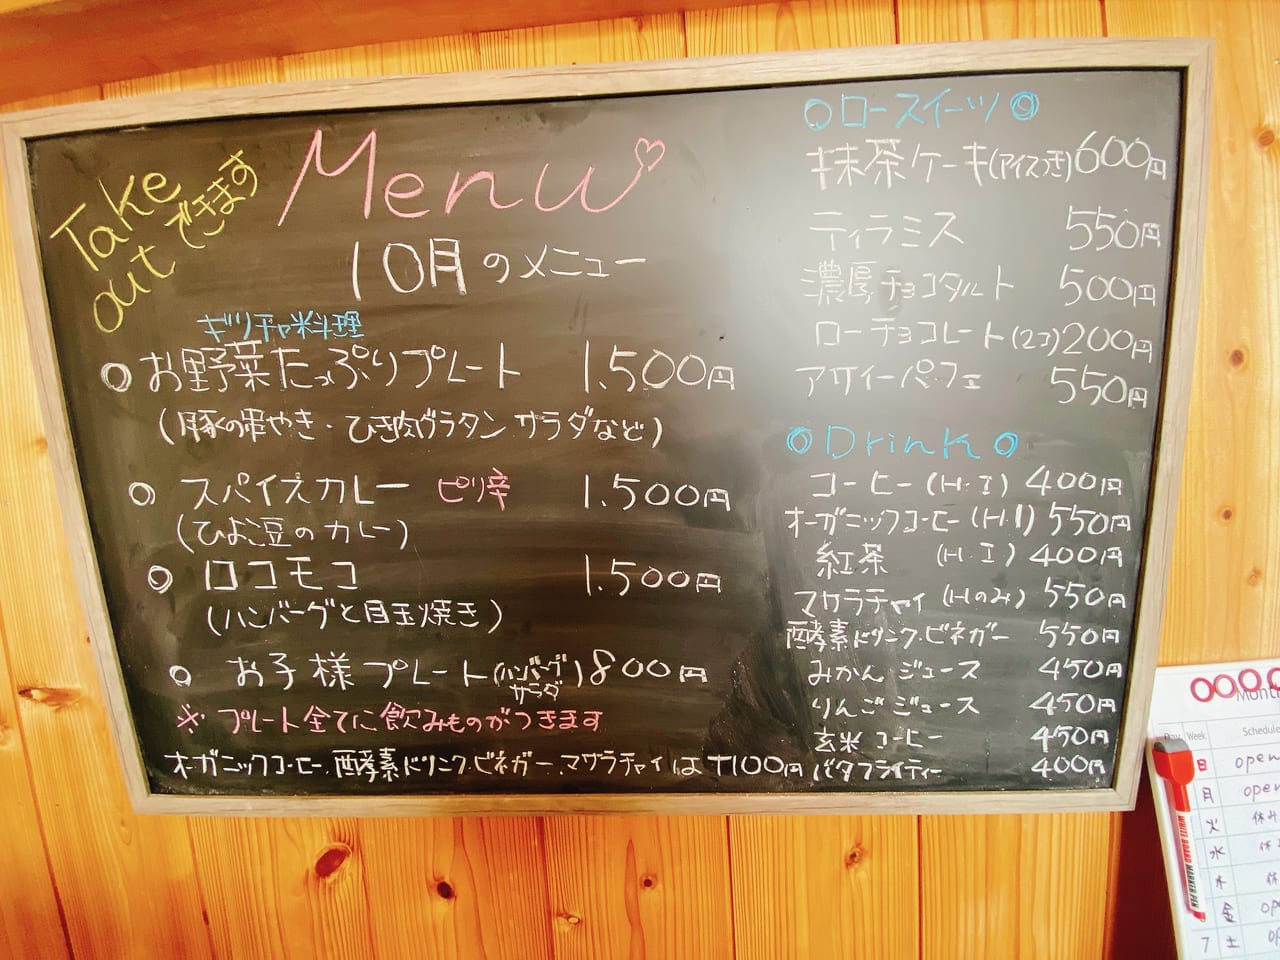 Take
out できます
Menu
10月のメニュー
ギリチャ料理
お野菜たっぷりプレート 1.500円
(豚くの やき・ひき肉グラタン サラダなど)
スパイスカレー ピリ辛 1.500円
(ひよこ豆のカレー)
ロコモコ 1.500円
(ハンバーグと目玉焼き)
お子様プレート(ハンバーグ サラダ) 800円
※プレート全てに飲みものがつきます
オーガニックコーヒー、酵素ドリンク・ビネガー、マサラチャイは+100円
◎ロースイーツ◎
抹茶ケーキ(アイスつき)600円
ティラミス 550円
濃厚チョコタルト 500円
ローチョコレート(2コ)200円
アサイーパフェ 550円
◎Drink◎
コーヒー(H・I) 400円
オーガニックコーヒー(H.I) 550円
紅茶 (H・I) 400円
マサラチャイ (Hのみ) 550円
酵素ドリンク・ビネガー 550円
みかんジュース 450円
りんごジュース 450円
玄米コーヒー 450円
バタフライティー 400円
Month
Day Week Schedule
日 open
月 open
火 休み
水 休
木 休
金 op
7 土 op
WHITE BOARD MARKER PEN